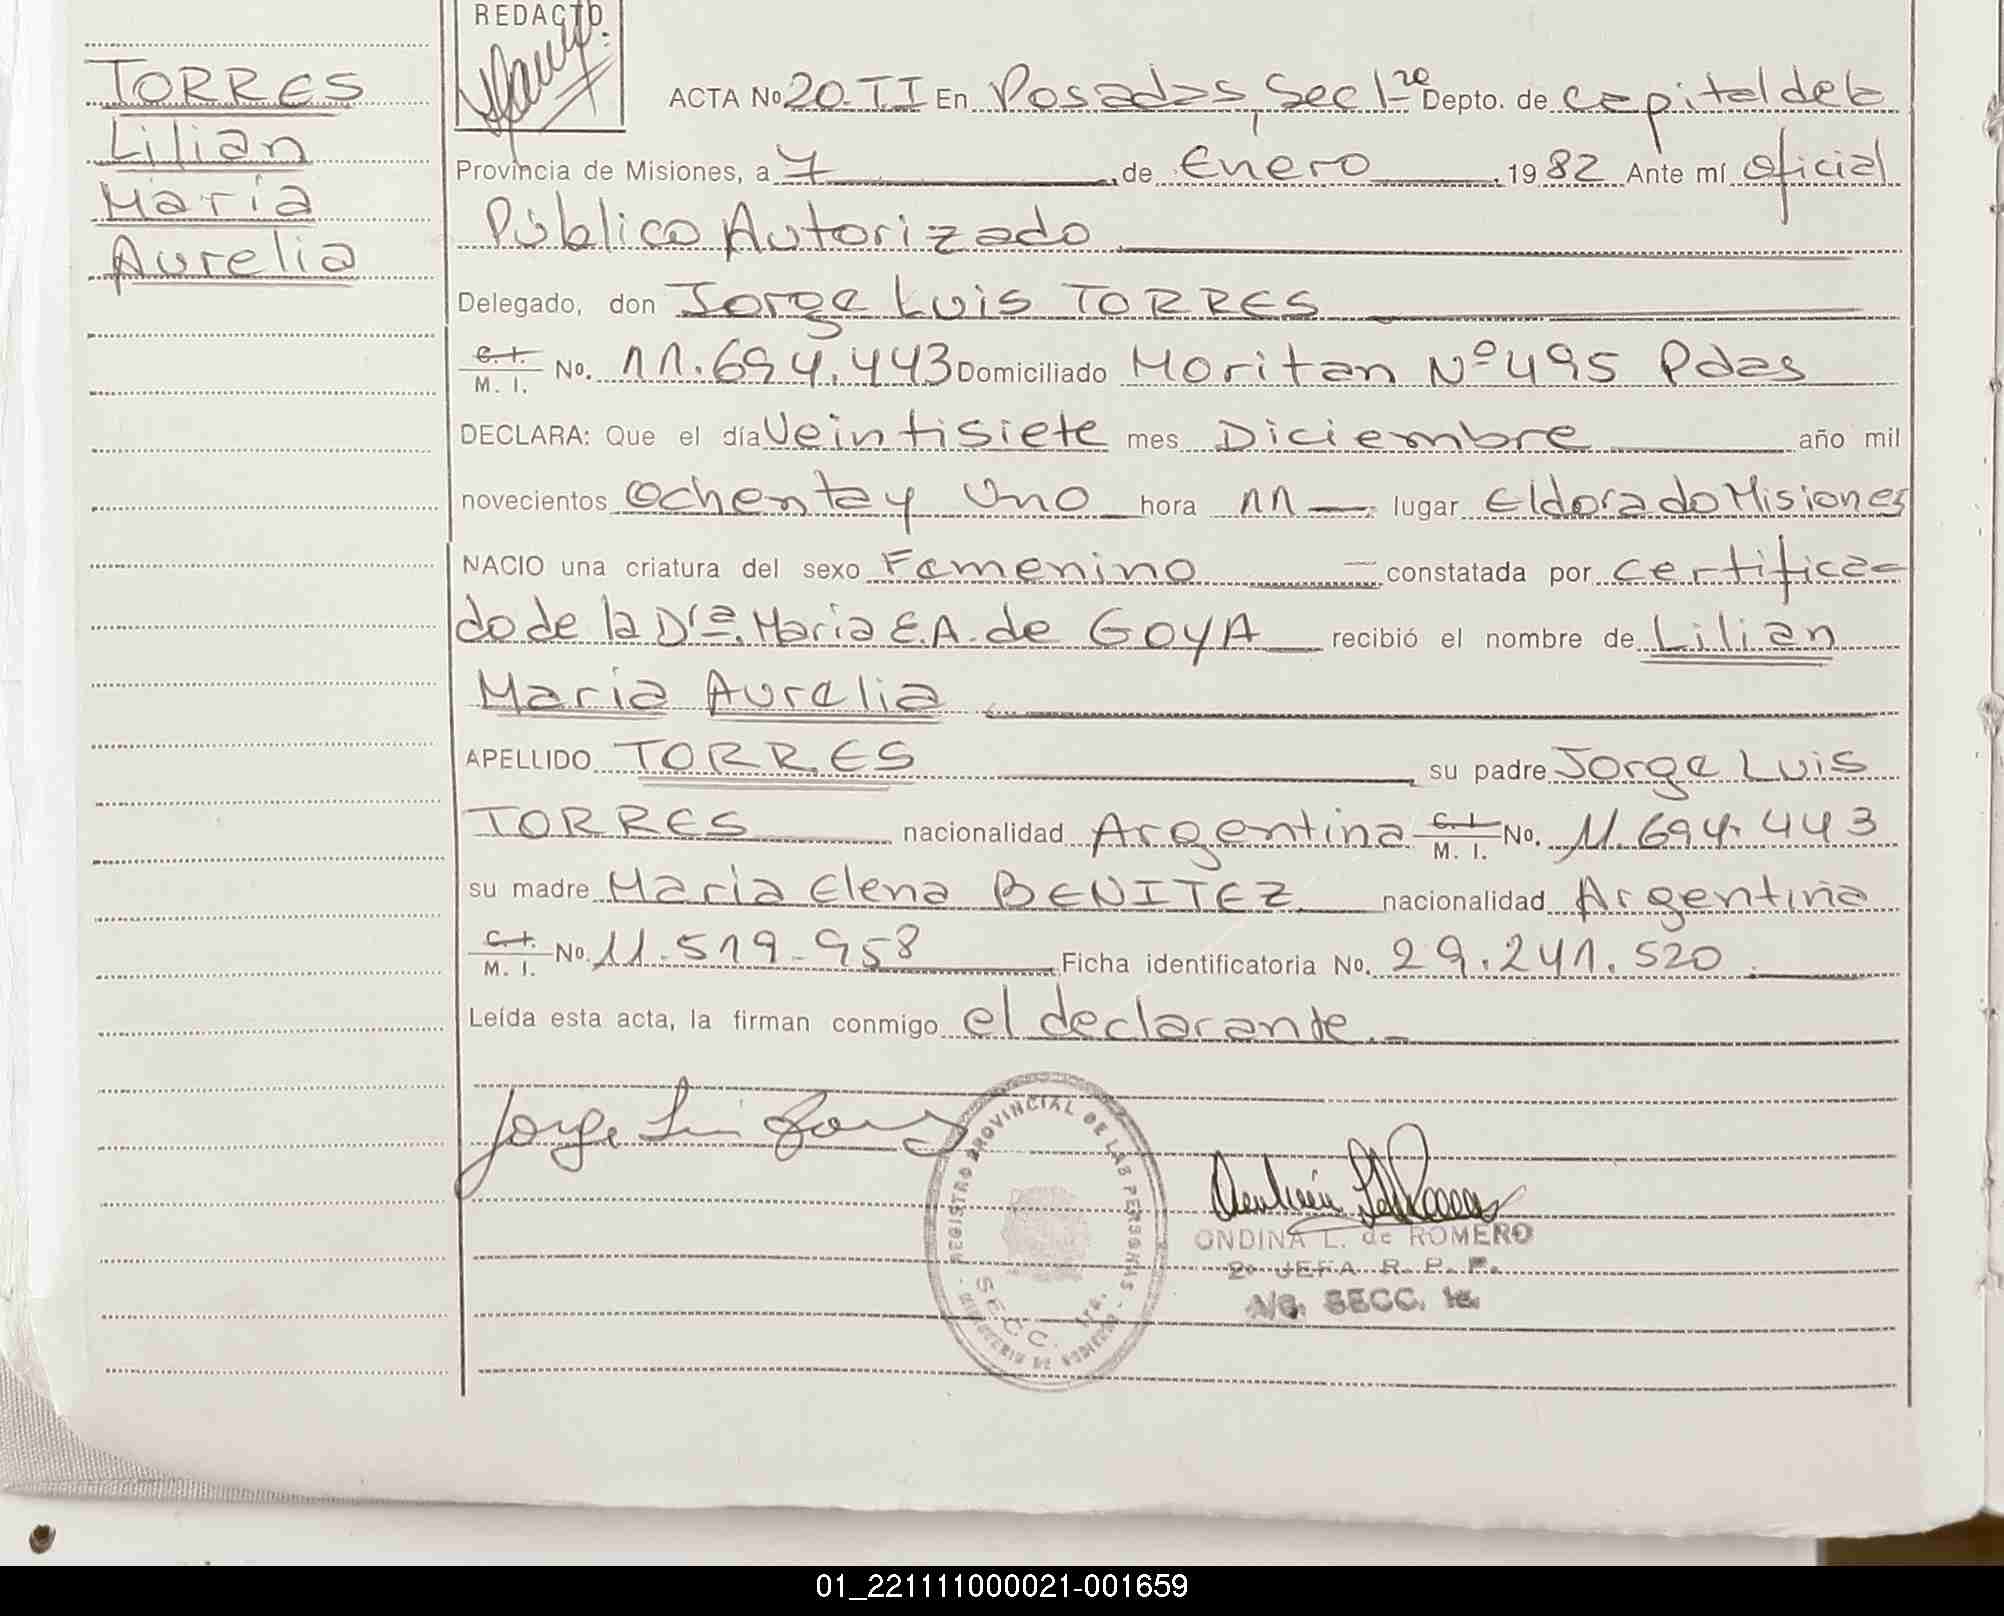 REDACTO
TORRES
Lilian
María
Aurelia
ACTA No 20-II En Posadas, Sec 1ra Depto. de capital de la
Provincia de Misiones, a 7 de Enero 1982 Ante mí oficial
Público Autorizado
Delegado, don Jorge Luis TORRES
C. I. / M. I. No. 11.694.443 Domiciliado Moritan Nº 495 Pdas
DECLARA: Que el día Veintisiete mes Diciembre año mil
novecientos Ochenta y Uno hora 11 lugar Eldorado Misiones
NACIO una criatura del sexo Femenino constatada por certifica-
do de la Dra. Maria E.A. de GOYA recibió el nombre de Lilian
María Aurelia
APELLIDO TORRES su padre Jorge Luis
TORRES nacionalidad Argentina C. I. / M. I. No. 11.694.443
su madre Maria Elena BENITEZ nacionalidad Argentina
C. I. / M. I. No. 11.519.958 Ficha identificatoria No. 29.241.520
Leída esta acta, la firman conmigo el declarante.-
Jorge Luis Torres
REGISTRO PROVINCIAL DE LAS PERSONAS
SECC. 1ra.
MINISTERIO DE GOBIERNO
ONDINA L. de ROMERO
2º JEFA R. P. P.
A/C. SECC. 1a.
01_221111000021-001659